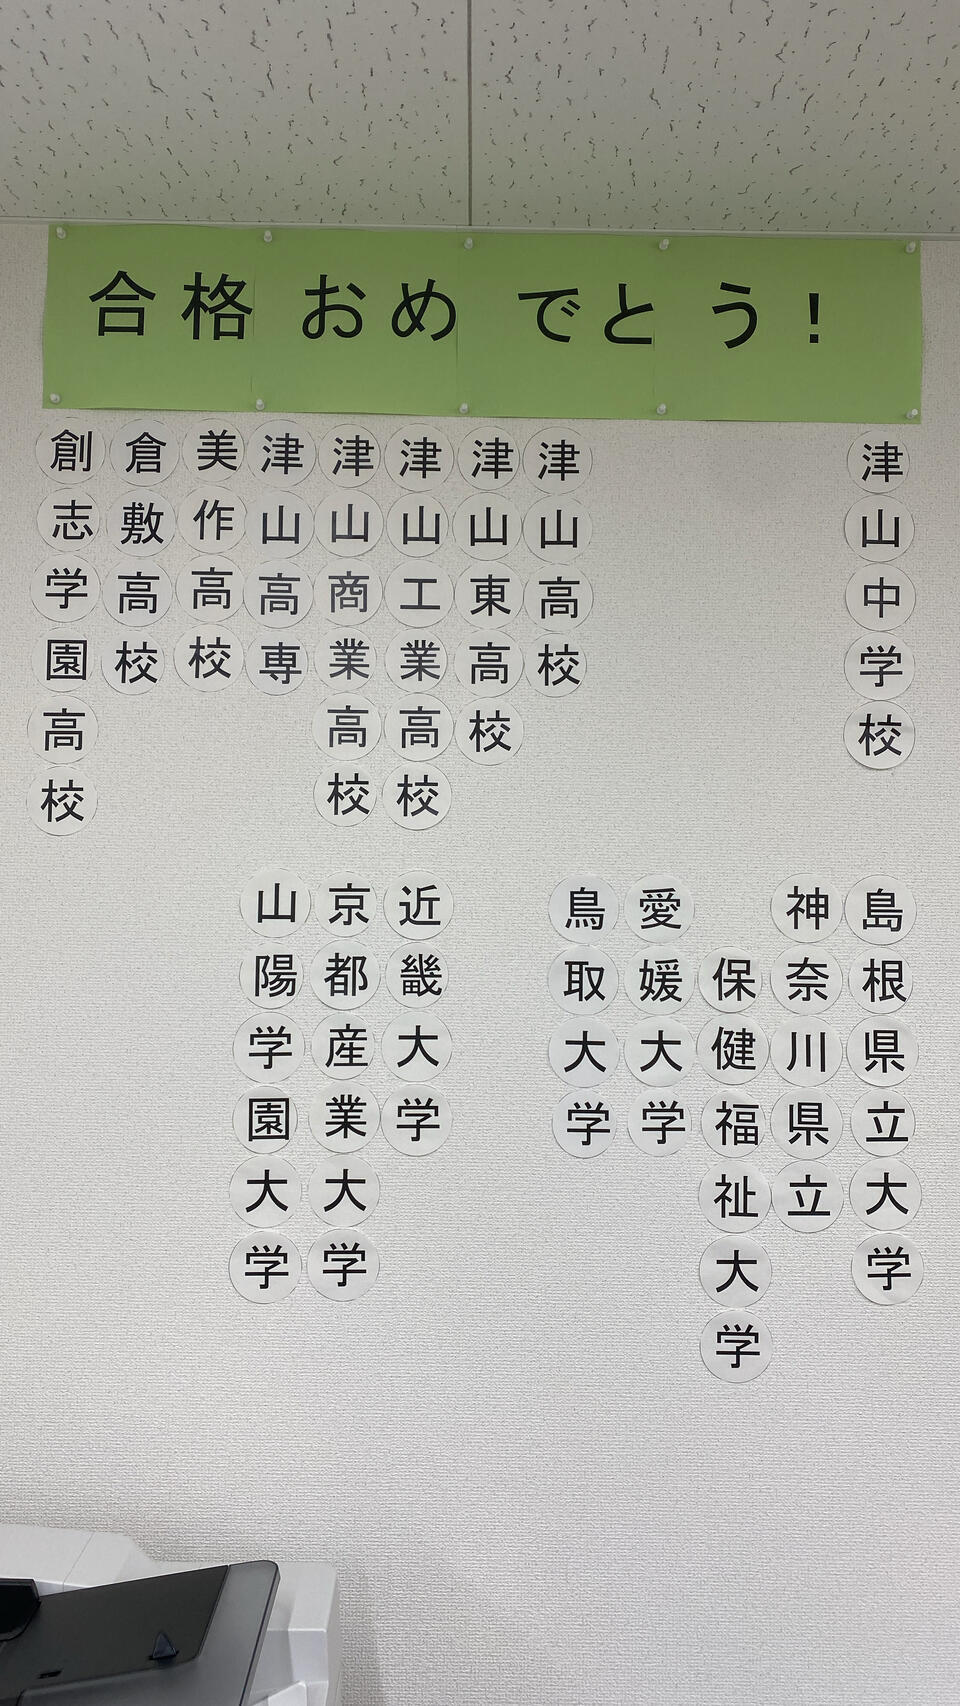 合格おめでとう！
津山中学校
津山高校
津山東高校
津山工業高校
津山商業高校
津山高専
美作高校
倉敷高校
創志学園高校
島根県立大学
神奈川県立
保健福祉大学
愛媛大学
鳥取大学
近畿大学
京都産業大学
山陽学園大学